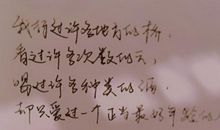 我行过许多地方的桥，
看过许多次数的云，
喝过许多种类的酒，
却只爱过一个正当最好年龄的